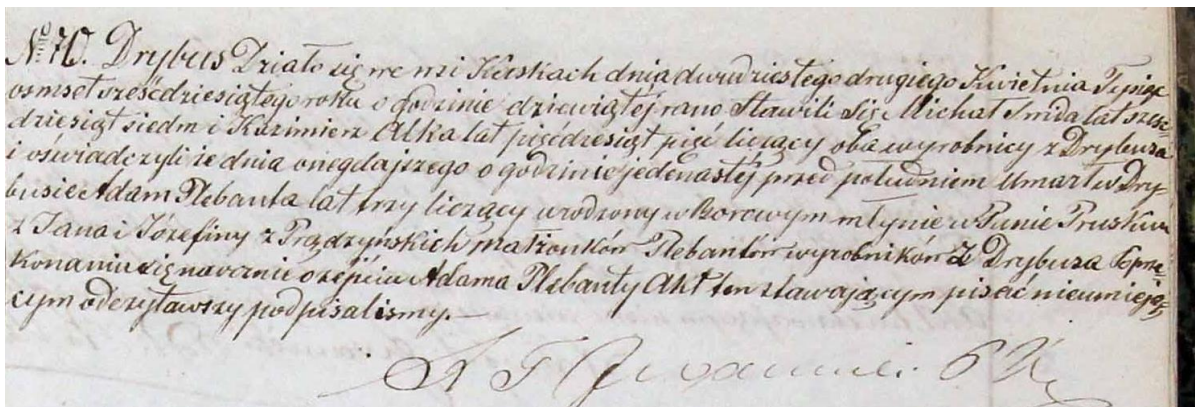 № 70. Drybus Działo się we wsi Kuskach dnia dwudziestego drugiego Kwietnia Tysiąc
osmset sześćdziesiątego roku o godzinie dziewiątéj rano Stawili Się Michał Smida lat sześć
dziesiąt siedm i Kazimierz Alka lat pięćdziesiąt pięć liczący oba wyrobnicy z Drybusa
i oświadczyli że dnia onegdajszego o godzinie jedenastéj przed południem Umarł w Dry-
busie Adam Plebanta lat trzy liczący urodzony w Borowym młynie w Stanie Pruskim
z Jana i Józefiny z Prądzyńskich małżonków Plebantów wyrobników z Drybusa Po prze
konaniu się naocznie o zejściu Adama Plebanty Akt ten stawającym pisać nieumiejo-
cym odczytawszy podpisalismy.